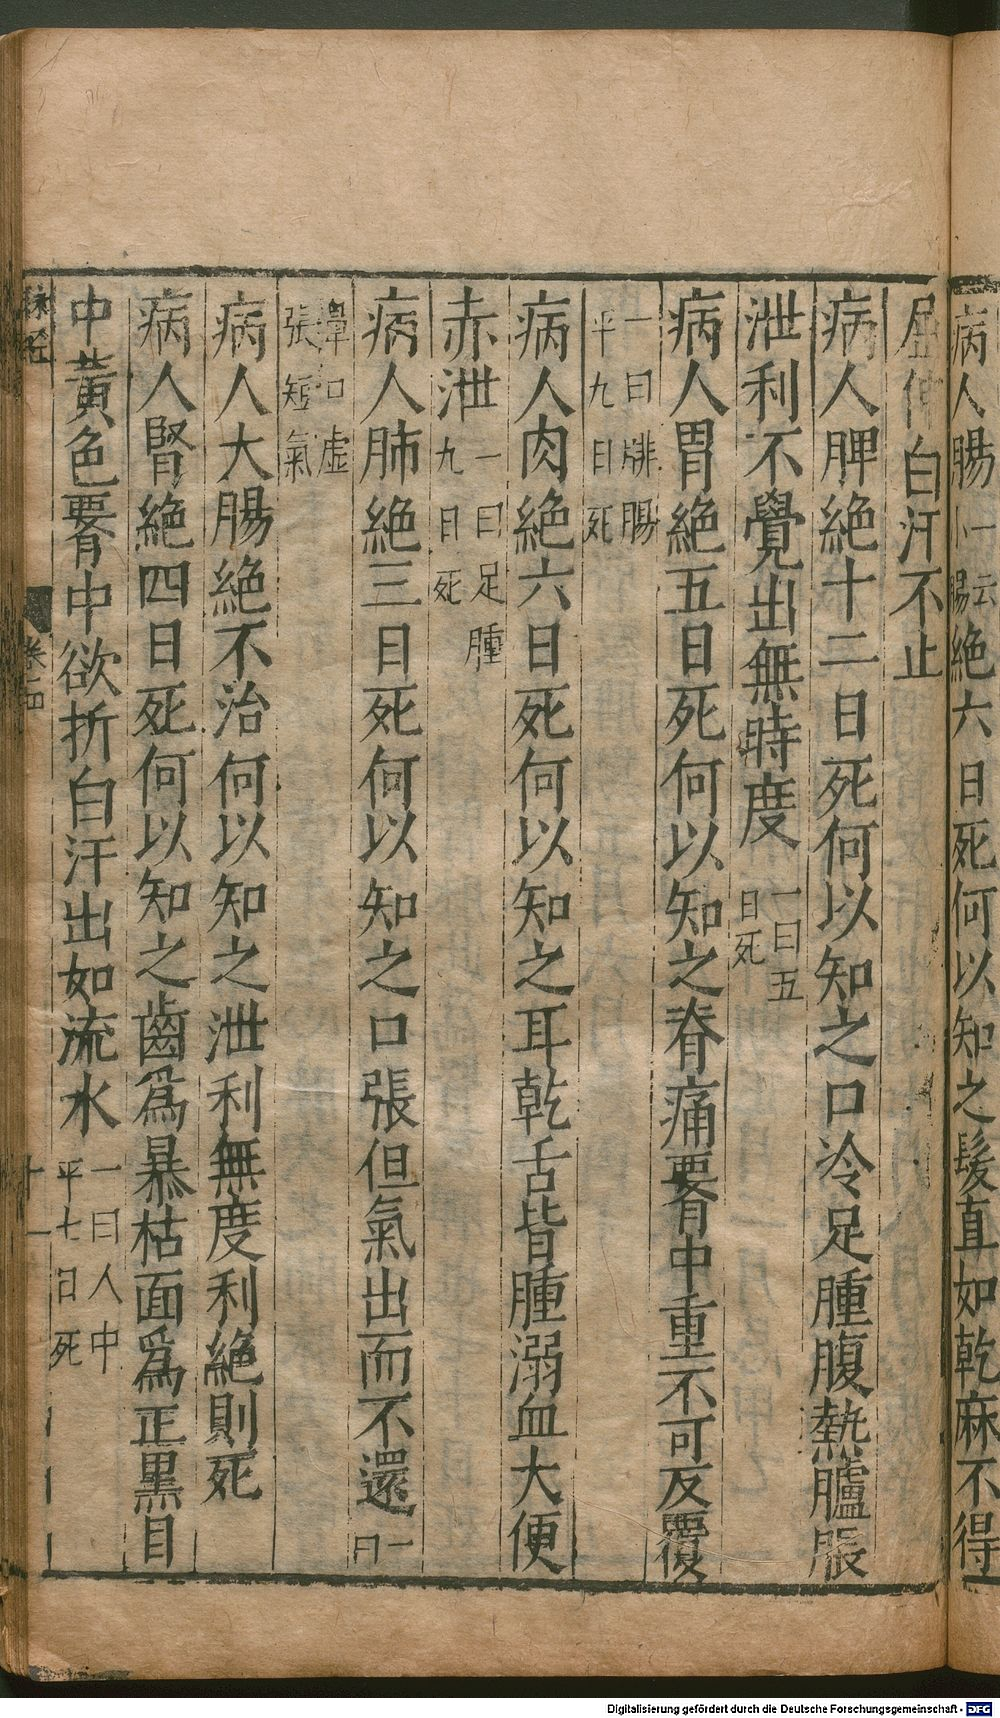 病人腸一云小腸絶六日死何以知之髮直如乾麻不得
屈伸白汗不止
病人脾絶十二日死何以知之口冷足腫腹熱臚脹
泄利不覺出無時度一曰五日死
病人胃絶五日死何以知之脊痛腰中重不可反覆
一曰腓腸平九日死
病人肉絶六日死何以知之耳乾舌皆腫溺血大便
赤泄一曰足腫九日死
病人肺絶三日死何以知之口張但氣出而不還一曰
口虛張短氣
病人大腸絶不治何以知之泄利無度利絶則死
病人腎絶四日死何以知之齒爲暴枯面爲正黒目
中黃色腰中欲折白汗出如流水一曰人中平七日死
脉經
卷四
十一
Digitalisierung gefördert durch die Deutsche Forschungsgemeinschaft - DFG